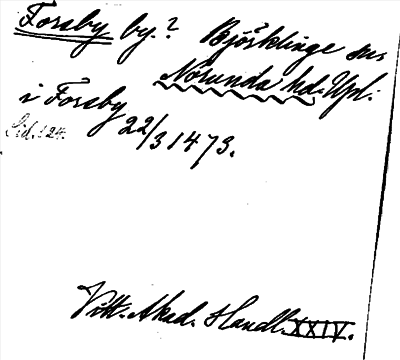 Forsby by? Björklinge sn,
Norunda hd. Upl.
i Forsby 22/3 1473.
Sid. 124.
Vitt. Akad. Handl. XXIV.